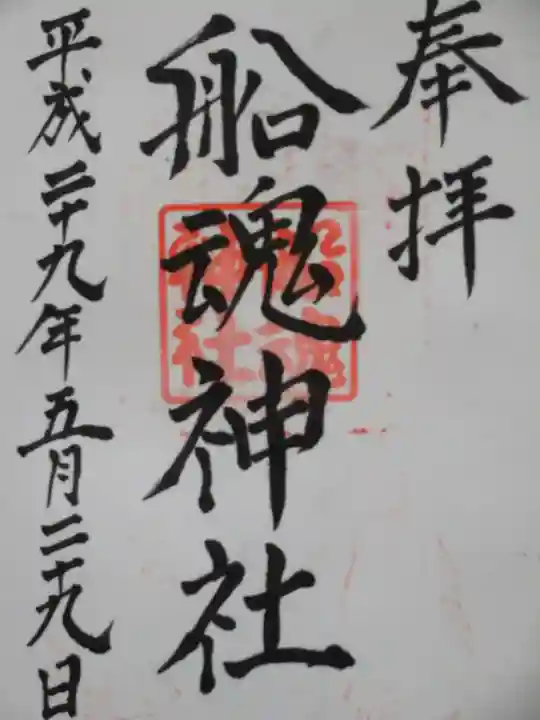 奉拝
船魂神社
船魂神社
平成二十九年五月二十九日